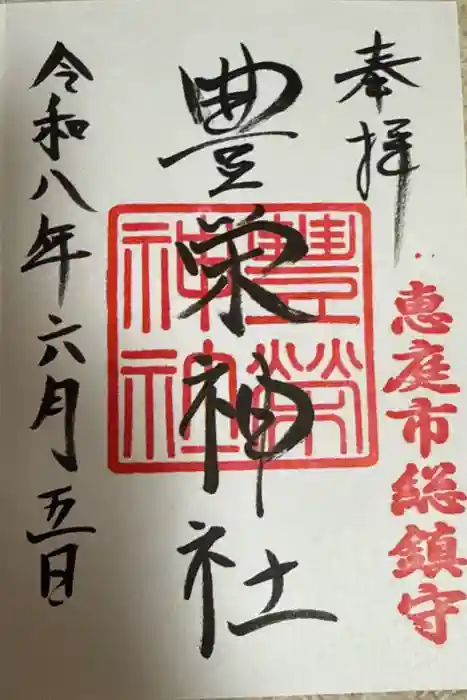 奉拝
恵庭市総鎮守
豊栄神社
豊榮神社
令和八年六月五日